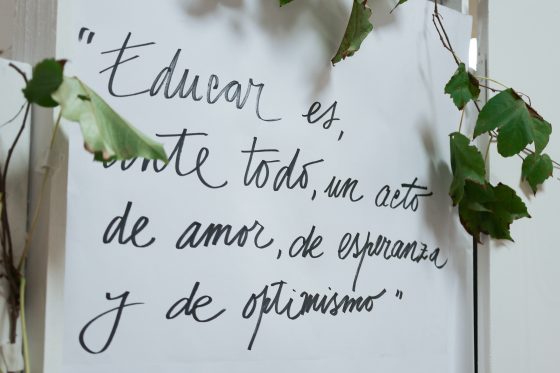 "Educar es,
ante todo, un acto
de amor, de esperanza
y de optimismo"